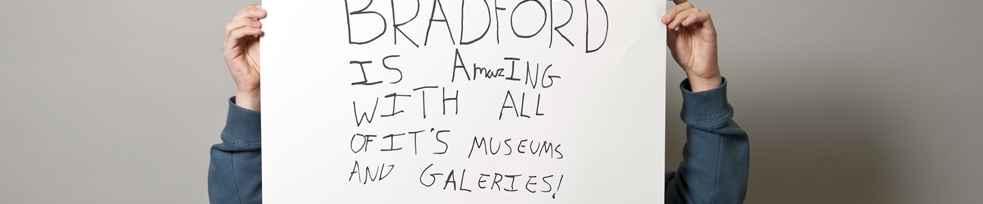 BRADFORD
IS AmazING
WITH ALL
OF IT'S MUSEUMS
AND GALERIES!